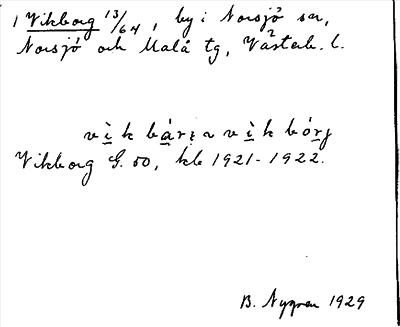 1 Vikborg 13/64, by i Norsjö sn,
Norsjö och Malå tg, Västerb. l.
vìk bárj ~ vìk bórj
Vikborg G. 50, kb 1921-1922.
B. Nygren 1929